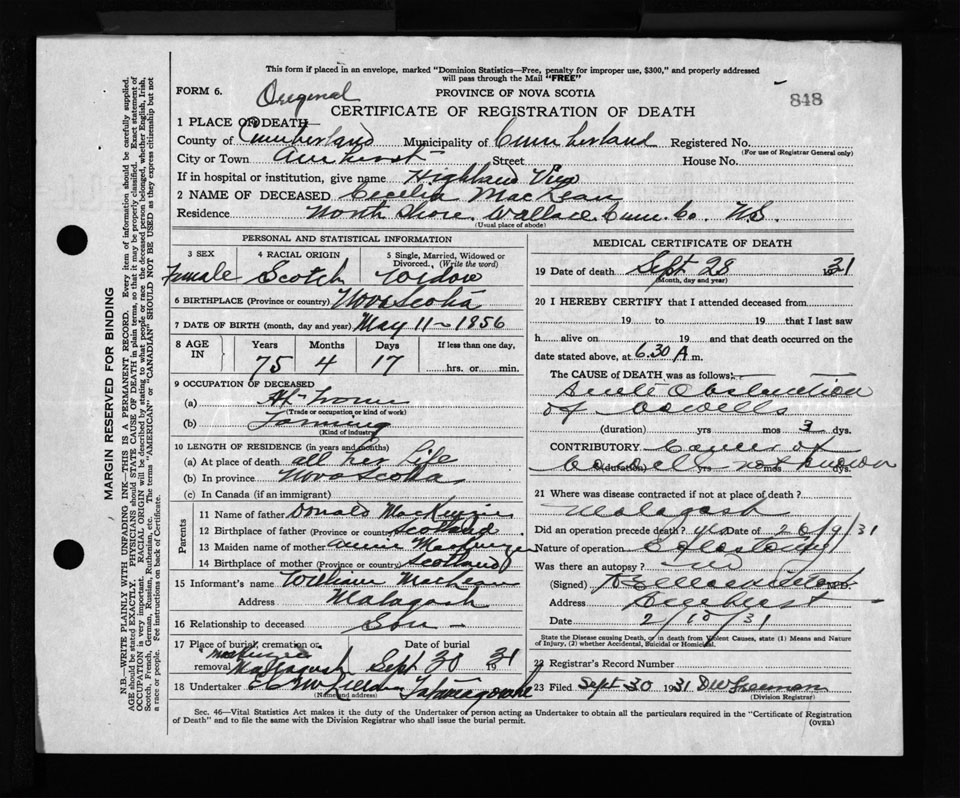 This form if placed in an envelope, marked "Dominion Statistics—Free, penalty for improper use, $300," and properly addressed
will pass through the Mail "FREE"
FORM 6.
Original
PROVINCE OF NOVA SCOTIA
848
CERTIFICATE OF REGISTRATION OF DEATH
1 PLACE OF DEATH
County of Cumberland Municipality of Cumberland Registered No.
(For use of Registrar General only)
City or Town Amherst Street House No.
If in hospital or institution, give name Highland View
2 NAME OF DECEASED Cecilia MacLean
Residence North Shore Wallace Cum. Co. N.S.
(Usual place of abode)
PERSONAL AND STATISTICAL INFORMATION
3 SEX 4 RACIAL ORIGIN 5 Single, Married, Widowed or
Divorced, (Write the word)
Female Scotch Widow
6 BIRTHPLACE (Province or country) Nova Scotia
7 DATE OF BIRTH (month, day and year) May 11-1856
8 AGE IN Years Months Days If less than one day,
75 4 17 hrs. or min.
9 OCCUPATION OF DECEASED
(a) At Home
(Trade or occupation or kind of work)
(b) Farming
(Kind of industry)
10 LENGTH OF RESIDENCE (in years and months)
(a) At place of death all her life
(b) In province Nova Scotia
(c) In Canada (if an immigrant)
Parents
11 Name of father Donald MacKenzie
12 Birthplace of father (Province or country) Scotland
13 Maiden name of mother
14 Birthplace of mother (Province or country) Scotland
15 Informant's name William MacLean
Address Malagash
16 Relationship to deceased Son
17 Place of burial, cremation or Date of burial
removal Malagash Sept 30 1931
18 Undertaker Tatamagouche
(Name and address)
MEDICAL CERTIFICATE OF DEATH
19 Date of death Sept 28 1931
(Month, day and year)
20 I HEREBY CERTIFY that I attended deceased from
19 to 19 that I last saw
h alive on 19 and that death occurred on the
date stated above, at 6.30 A m.
The CAUSE of DEATH was as follows:
Acute Obstruction
of bowells
(duration) yrs mos 3 dys.
CONTRIBUTORY Cancer of
bowell not known
(duration) yrs mos dys.
21 Where was disease contracted if not at place of death?
Malagash
Did an operation precede death? yes Date of 20/9/31
Nature of operation
Was there an autopsy? No
(Signed) M.D.
Address Amherst
Date 2/10/31
State the Disease causing Death, or in death from Violent Causes, state (1) Means and Nature
of Injury, (2) whether Accidental, Suicidal or Homicidal.
22 Registrar's Record Number
23 Filed Sept 30 1931 D W Freeman
(Division Registrar)
Sec. 46—Vital Statistics Act makes it the duty of the Undertaker of person acting as Undertaker to obtain all the particulars required in the "Certificate of Registration
of Death" and to file the same with the Division Registrar who shall issue the burial permit.
(OVER)
MARGIN RESERVED FOR BINDING
N.B.—WRITE PLAINLY WITH UNFADING INK—THIS IS A PERMANENT RECORD. Every item of information should be carefully supplied.
AGE should be stated EXACTLY. PHYSICIANS should STATE CAUSE OF DEATH in plain terms, so that it may be properly classified. Exact statement of
OCCUPATION is very important. RACIAL ORIGIN will be described by stating to what people or race the deceased person belonged, whether English, Irish,
Scotch, French, German, Russian, Ruthenian, etc. The terms "AMERICAN" or "CANADIAN" SHOULD NOT BE USED as they express citizenship but not
a race or people. See instructions on back of Certificate.